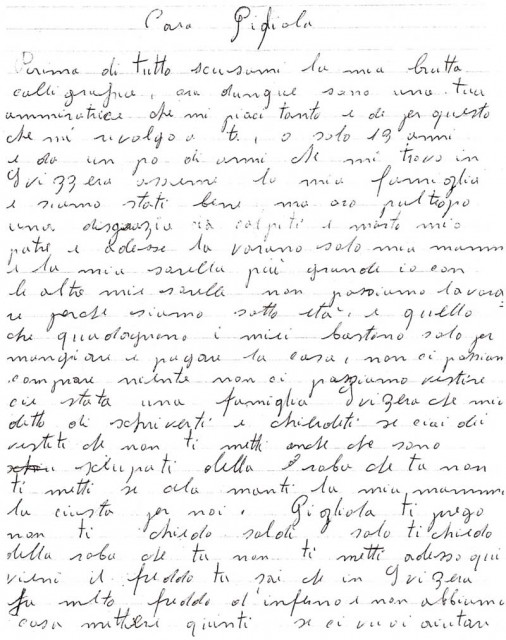 Cara Gigliola
Prima di tutto scusami la mia brutta
calligrafia, ora dunque sono una tua
ammiratrice che mi piaci tanto e di per questo
che mi rivolgo a te, o solo 13 anni
e da un po di anni che mi trovo in
Svizzera assieme la mia famiglia
e siamo stati bene ma ora pultropo
una disgrazia ci à colpiti e morto mio
patre e adesse la vorano solo mia mamm
e la mia sorella più grande io con
le altre mie sorelle non possiamo lavora
re perche siamo sotto età, e quello
che guadagnano i miei bastano solo per
mangiare e pagare la casa, non ci possiam
comprare niente non ci possiamo vestire
cie stata una famiglia Svizera che mia
detto di schriverti e chiederti se ciai dei
vestiti che non ti metti anche che sono
sciupati della roba che tu non
ti metti se cela manti la mia mamma
la ciusta per noi. Gigliola ti prego
non ti chiedo soldi solo ti chiedo
della roba che tu non ti metti adesso qui
vieni il freddo tu sai che in Svizera
fa molto freddo d'inferno e non abbiamo
cosa mettere quinti se ci vuoi aiutare